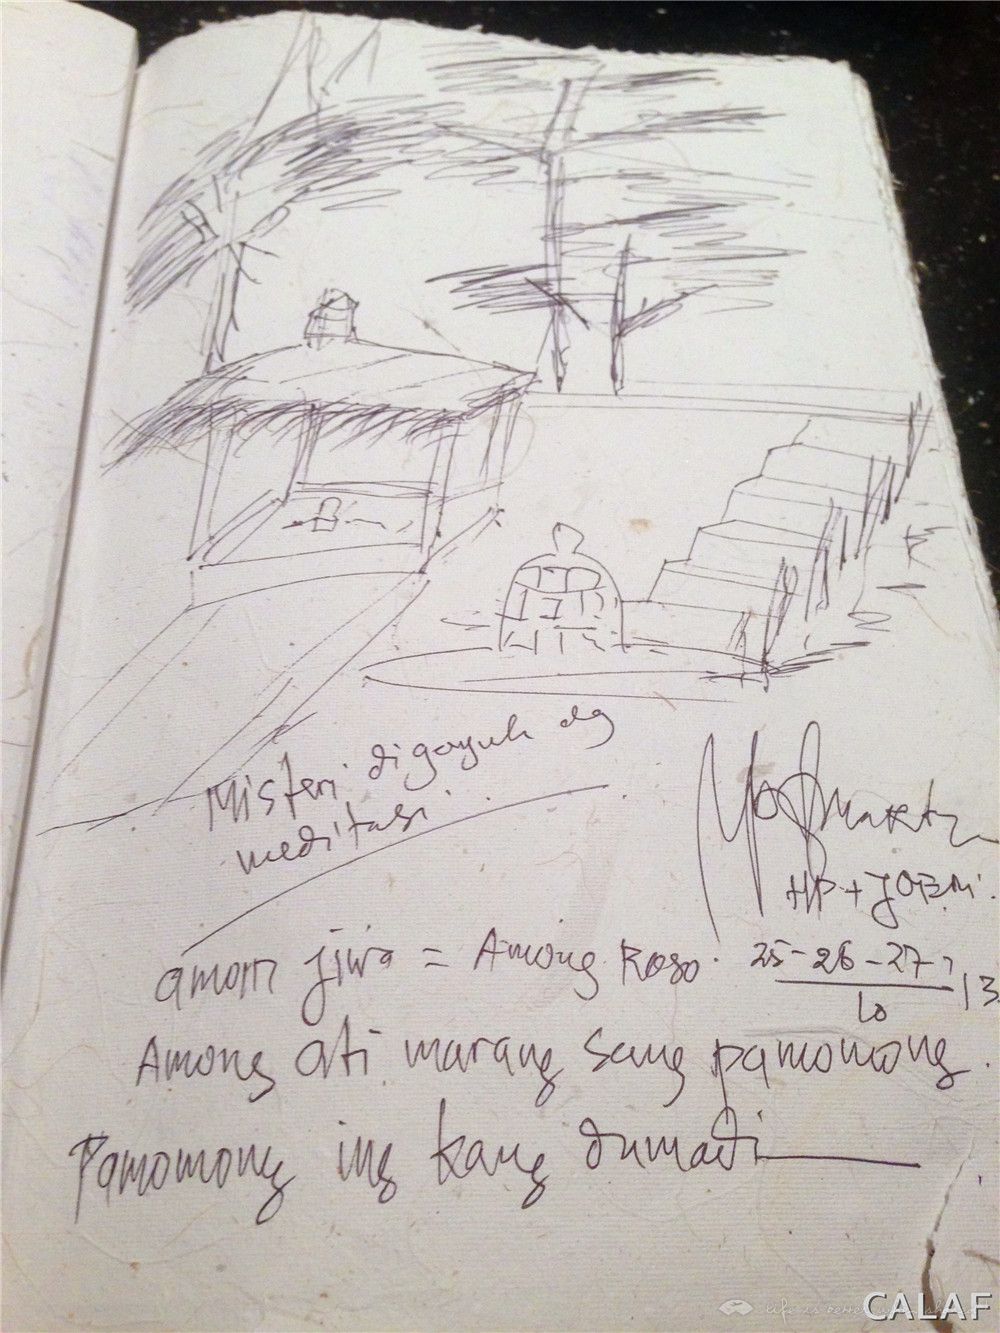 Misteri digayuh dg
meditasi
HP + JOBMi.
amom jiwa = Among Roso.
25-26-27,
10
13
Among ati marang sang pamomong.
Pamomong ing kang dumadi
CALAF